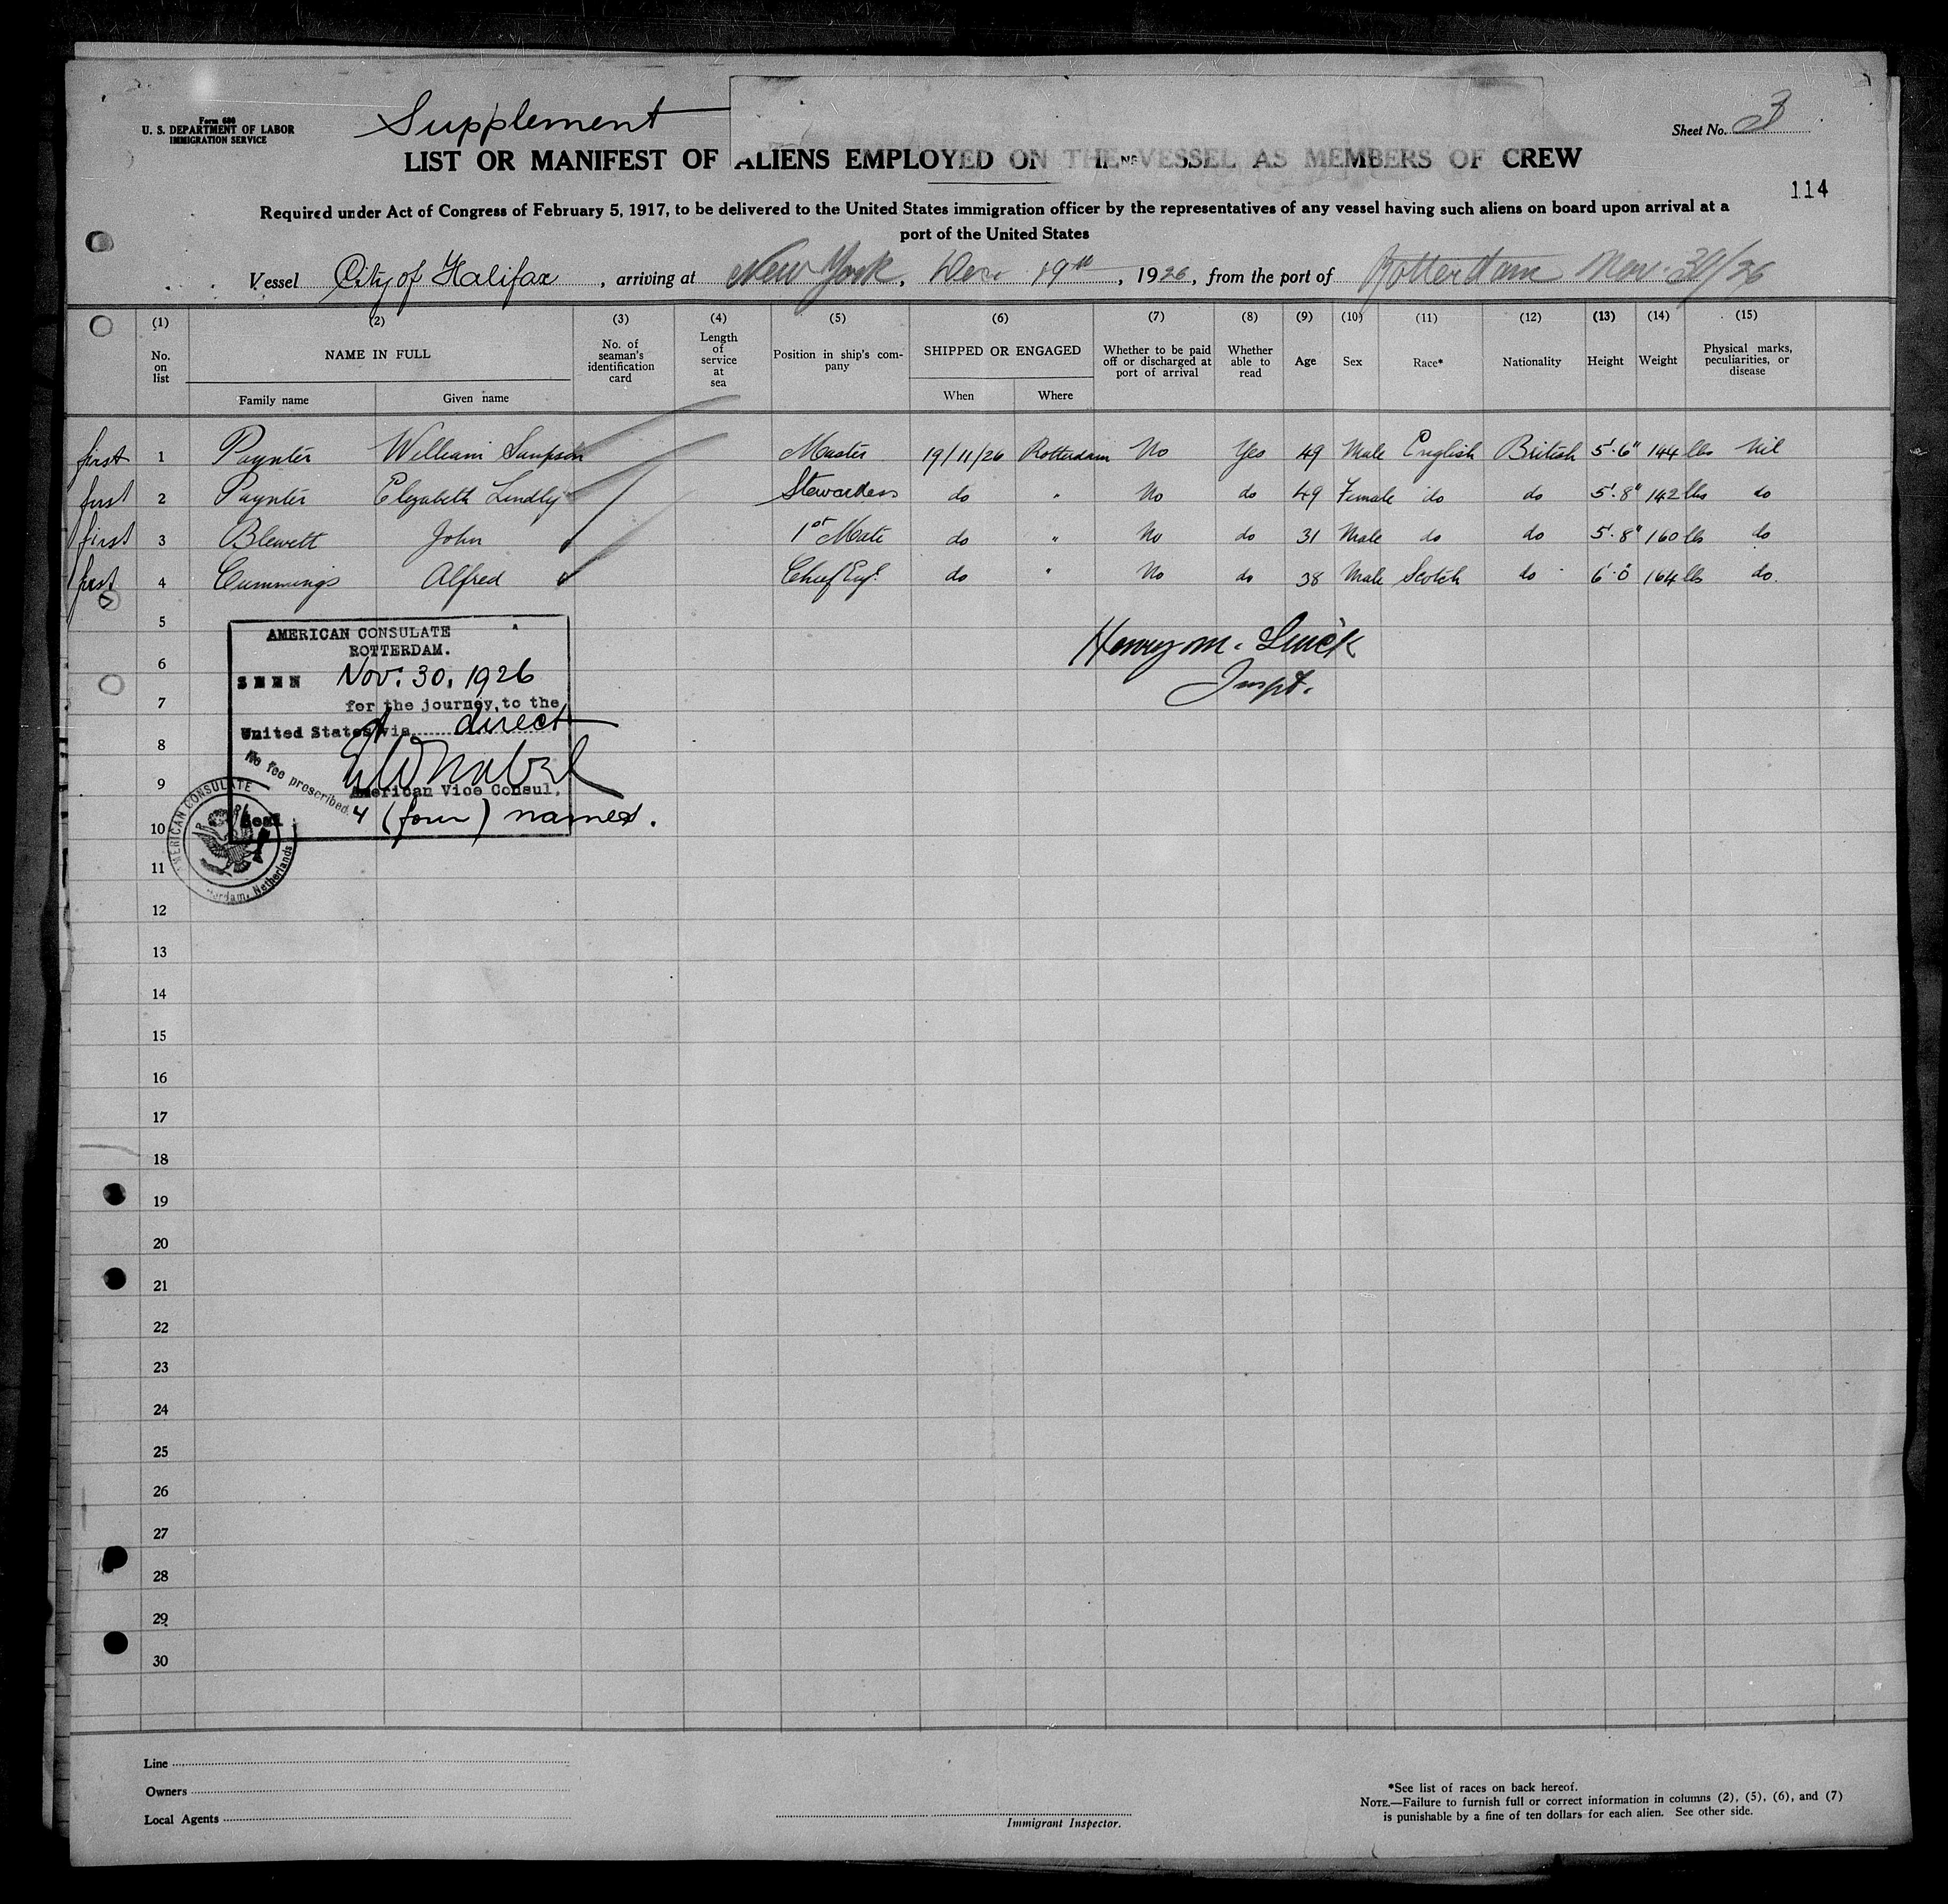 Supplement
Form 680
U. S. DEPARTMENT OF LABOR
IMMIGRATION SERVICE
Sheet No. 3
LIST OR MANIFEST OF ALIENS EMPLOYED ON THE VESSEL AS MEMBERS OF CREW
114
Required under Act of Congress of February 5, 1917, to be delivered to the United States immigration officer by the representatives of any vessel having such aliens on board upon arrival at a
port of the United States
Vessel City of Halifax, arriving at New York, Dec. 19th, 1926, from the port of Rotterdam Nov. 30/26
(1) (2) (3) (4) (5) (6) (7) (8) (9) (10) (11) (12) (13) (14) (15)
No. on list NAME IN FULL No. of seaman's identification card Length of service at sea Position in ship's company SHIPPED OR ENGAGED Whether to be paid off or discharged at port of arrival Whether able to read Age Sex Race* Nationality Height Weight Physical marks, peculiarities, or disease
Family name Given name When Where
first 1 Paynter William Simpson Master 19/11/26 Rotterdam No Yes 49 Male English British 5'.6" 144 lbs Nil
first 2 Paynter Elizabeth Lindly Stewardess do " No do 49 Female do do 5'.8" 142 lbs do
first 3 Blewett John 1st Mate do " No do 31 Male do do 5'.8" 160 lbs do
first 4 Cummings Alfred Chief Eng. do " No do 38 Male Scotch do 6'.0" 164 lbs do.
5
AMERICAN CONSULATE
ROTTERDAM.
Henry M.
Inspt.
6
SEEN Nov. 30, 1926
7
for the journey to the
United States via direct
8
No fee prescribed.
9
American Vice Consul.
10
Seal
4 (four) names.
AMERICAN CONSULATE
Rotterdam, Netherlands
11
12
13
14
15
16
17
18
19
20
21
22
23
24
25
26
27
28
29
30
Line
Owners
Local Agents
Immigrant Inspector.
*See list of races on back hereof.
NOTE.—Failure to furnish full or correct information in columns (2), (5), (6), and (7)
is punishable by a fine of ten dollars for each alien. See other side.